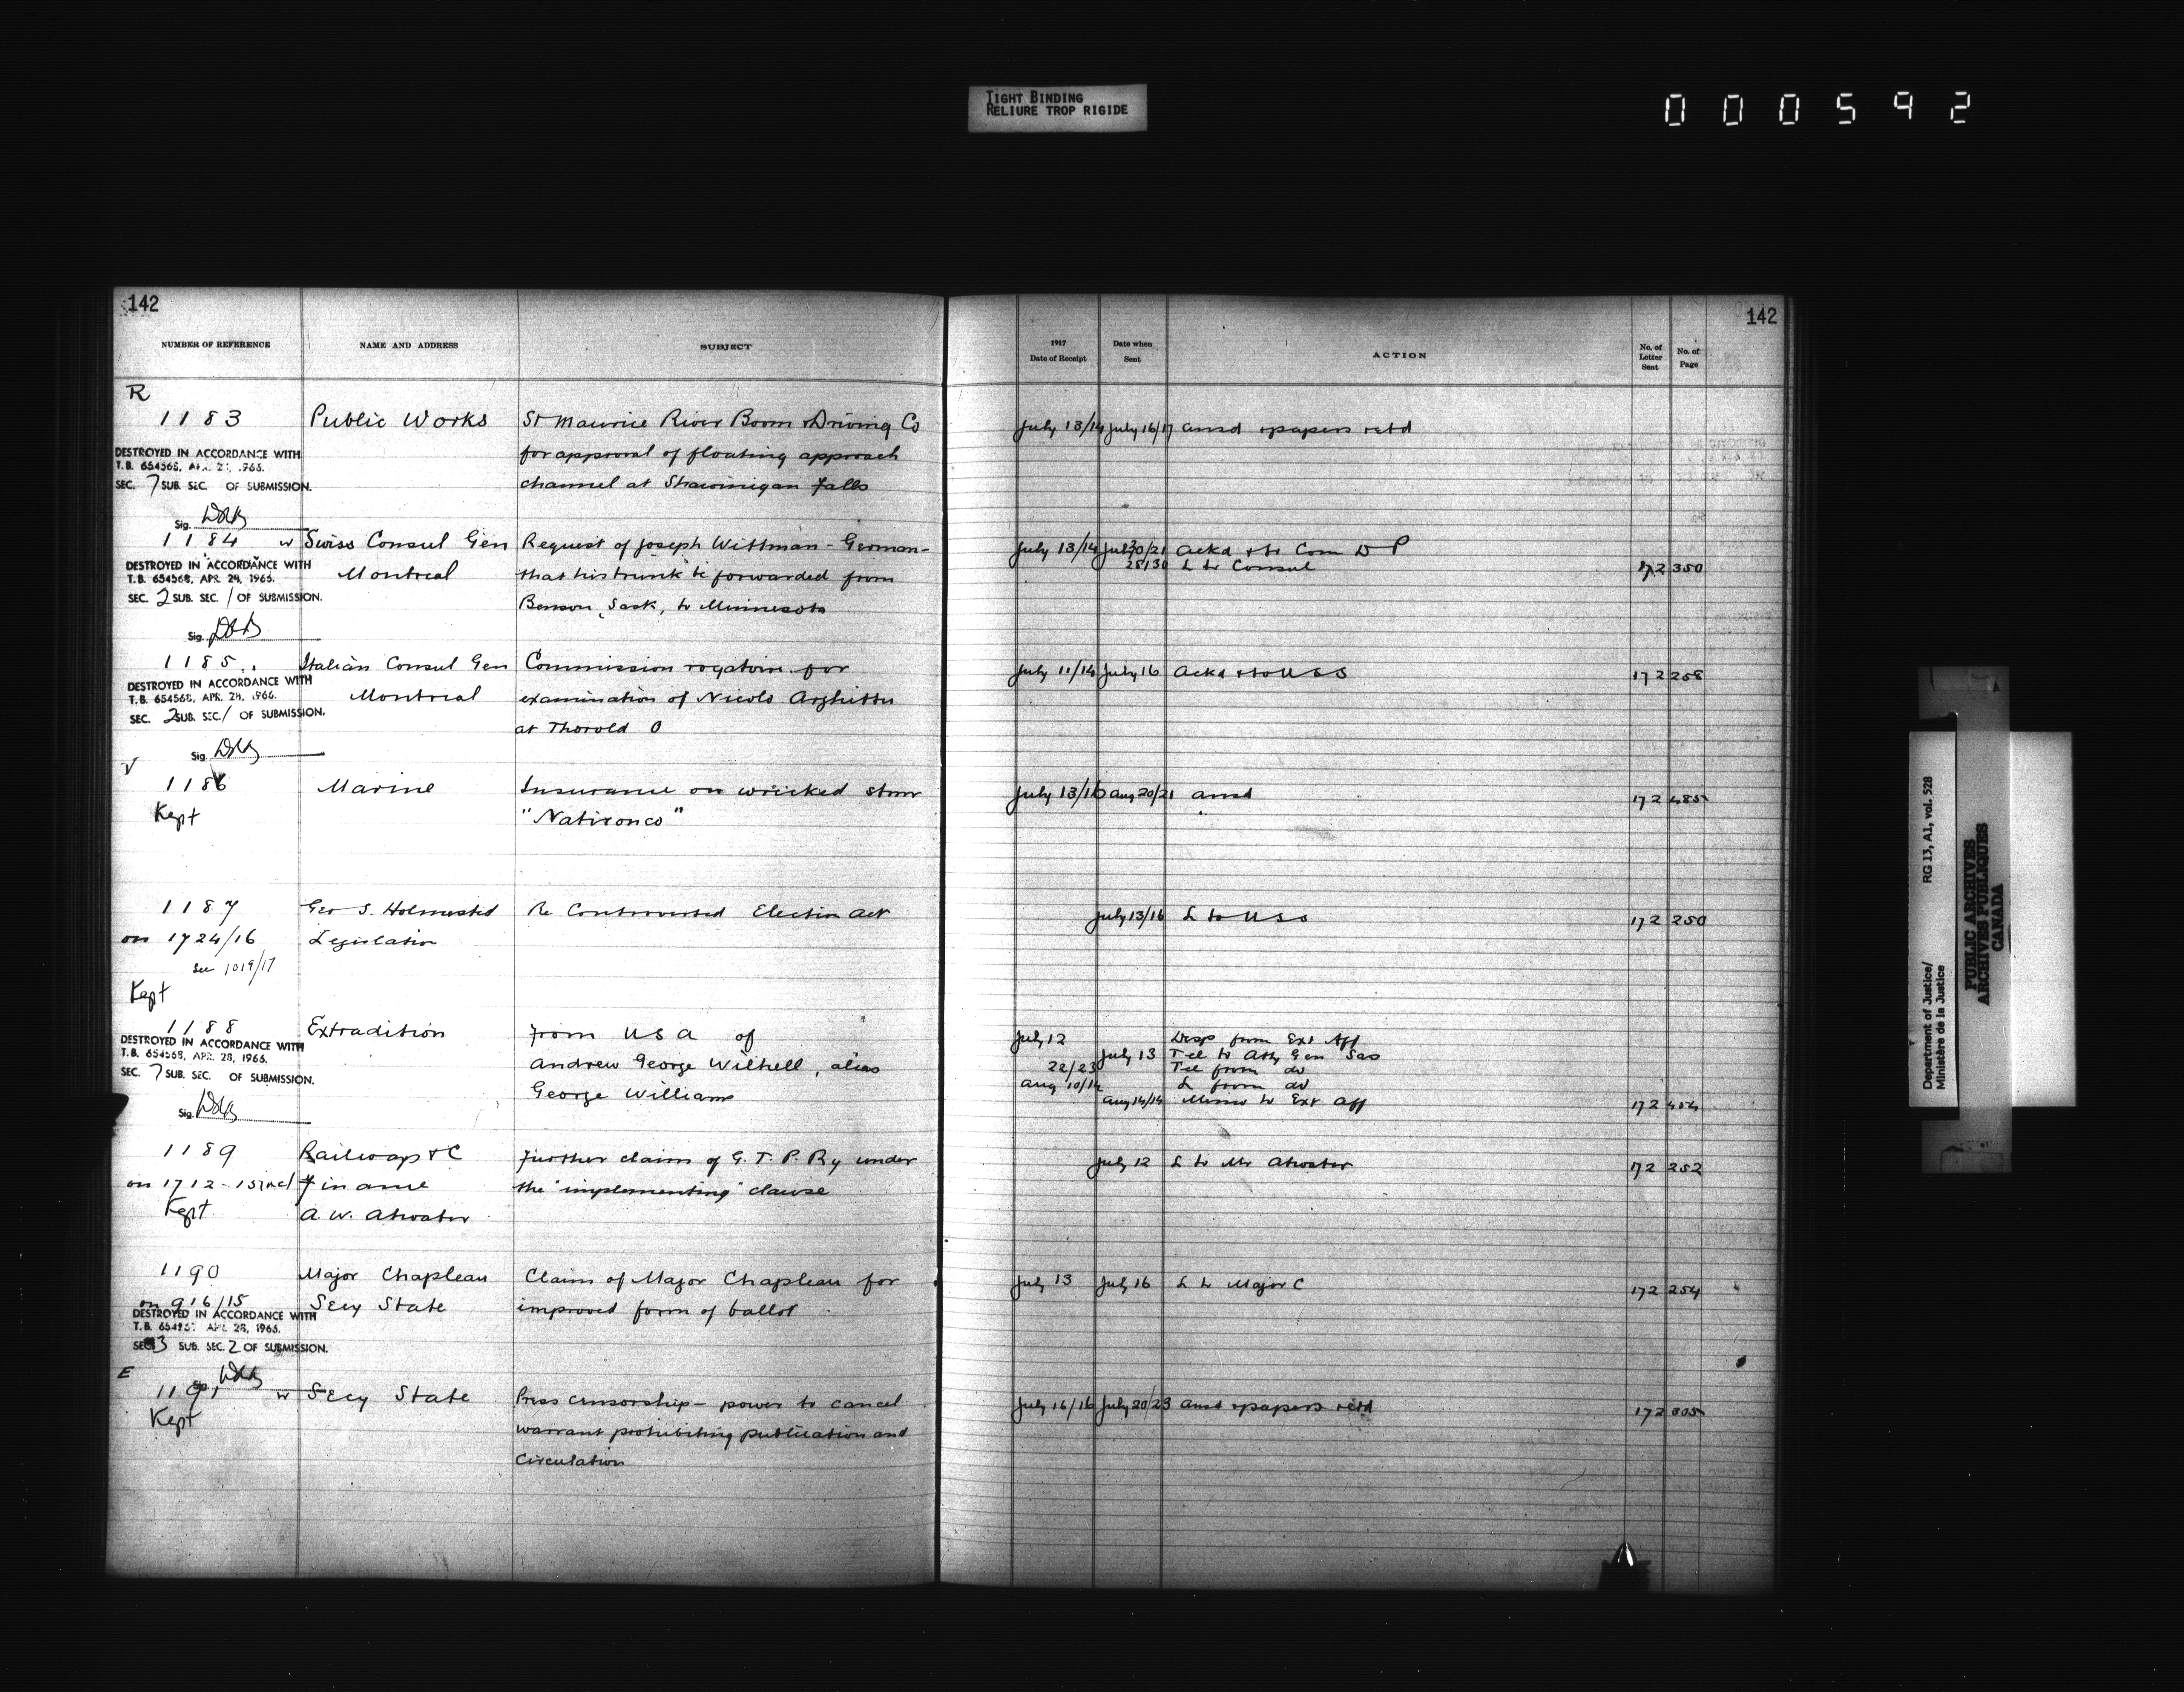 TIGHT BINDING
RELIURE TROP RIGIDE
000592
142
NUMBER OF REFERENCE NAME AND ADDRESS SUBJECT
R
1183 Public Works St Maurice River Boom & Driving Co
for approval of floating approach
channel at Shawinigan Falls
DESTROYED IN ACCORDANCE WITH
T.B. 654568, APR. 28, 1966.
SEC. 7 SUB. SEC. OF SUBMISSION.
Sig.
1184 w Swiss Consul Gen Request of Joseph Wittman - German -
Montreal that his trunk be forwarded from
Benson, Sask, to Minnesota
DESTROYED IN ACCORDANCE WITH
T.B. 654568, APR. 28, 1966.
SEC. 2 SUB. SEC. 1 OF SUBMISSION.
Sig.
1185 Italian Consul Gen Commission rogatoire for
Montreal examination of Nicolo
at Thorold O
DESTROYED IN ACCORDANCE WITH
T.B. 654568, APR. 28, 1966.
SEC. 2 SUB. SEC. 1 OF SUBMISSION.
Sig.
V
1186 Marine Insurance on wrecked stmr
Kept "Natironco"
1187 Geo S. Holmested Re Controverted Election Act
on 1724/16 Legislation
See 1019/17
Kept
1188 Extradition from U S A of
Andrew George Wilhell, alias
George Williams
DESTROYED IN ACCORDANCE WITH
T.B. 654568, APR. 28, 1966.
SEC. 7 SUB. SEC. OF SUBMISSION.
Sig.
1189 Railways & C Further claim of G. T. P. Ry under
on 1712-15 incl Finance the "implementing" clause
Kept A. W. Atwater
1190 Major Chapleau Claim of Major Chapleau for
on 916/15 Secy State improved form of ballot
DESTROYED IN ACCORDANCE WITH
T.B. 654568, APR. 28, 1966.
SEC. 3 SUB. SEC. 2 OF SUBMISSION.
E
1191 w Secy State Press censorship - power to cancel
Kept warrant prohibiting publication and
circulation
142
1917
Date of Receipt Date when Sent ACTION No. of Letter Sent No. of Page
July 13/14 July 16/17 ansd & papers retd
July 13/14 July 20/21 Ackd & to Com D P
28/30 L to Consul 172 350
July 11/14 July 16 Ackd & to U S S 172 258
July 13/16 Aug 20/21 ansd 172 485
July 13/16 L to U S S 172 250
July 12 Desp from Ext Aff
July 13 Tel to Atty Gen Sas
22/23 Tel from do
Aug 10/14 L from do
Aug 14/14 Memo to Ext Aff 172 454
July 12 L to Mr Atwater 172 252
July 13 July 16 L to Major C 172 254
July 16/16 July 20/23 ansd & papers retd 172 305
Department of Justice/ RG 13, A1, vol. 528
Ministère de la Justice
PUBLIC ARCHIVES
ARCHIVES PUBLIQUES
CANADA